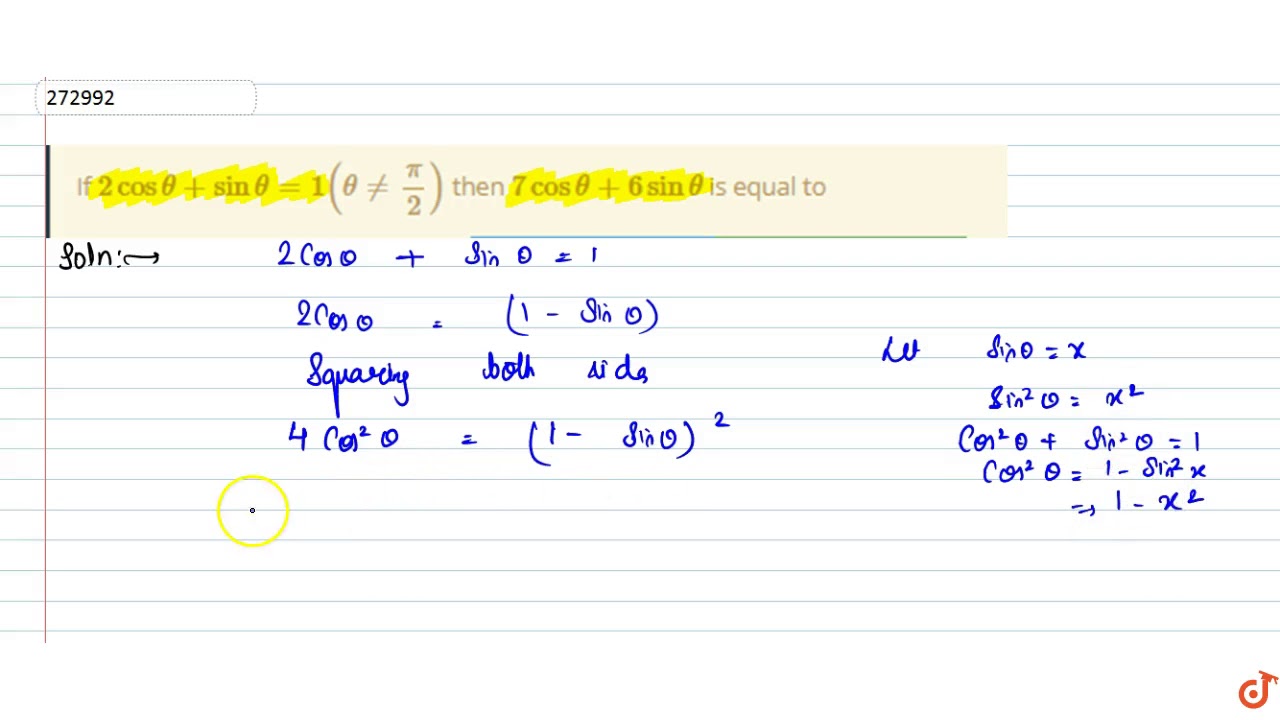 272992
If 2 cos θ + sin θ = 1 (θ ≠ π/2) then 7 cos θ + 6 sin θ is equal to
Soln:→ 2Cosθ + Sinθ = 1
2Cosθ = (1 - Sinθ)
Squaring both sides
4 Cos²θ = (1 - Sinθ)²
Let Sinθ = x
Sin²θ = x²
Cos²θ + Sin²θ = 1
Cos²θ = 1 - Sin²x
⇒ 1 - x²